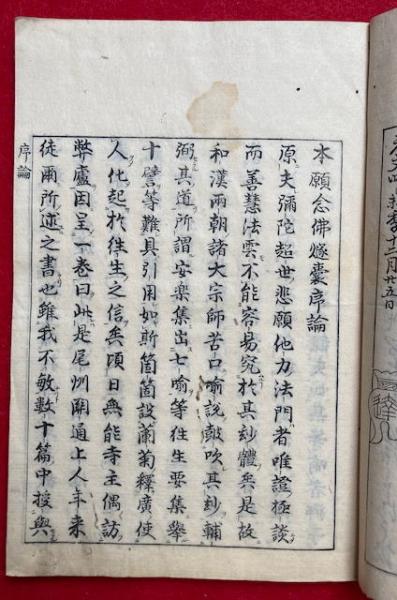 季十二月廿五日
本願念佛燧囊序論
原夫彌陀超世悲願他力法門者唯證極談
而善慧法雲不能容易究於其玅體矣是故
和漢兩朝諸大宗師苦口喻説皷吹其玅輔
弼其道所謂安樂集出七喻等徃生要集舉
十譬等難具引用如斯箇箇設蘭菊釋廣使
人化起於徃生之信矣頃日無能寺主偶訪
弊廬因呈一卷曰此是尾州關通上人年來
徒爾所述之書也雖我不敏數十篇中授與
序論